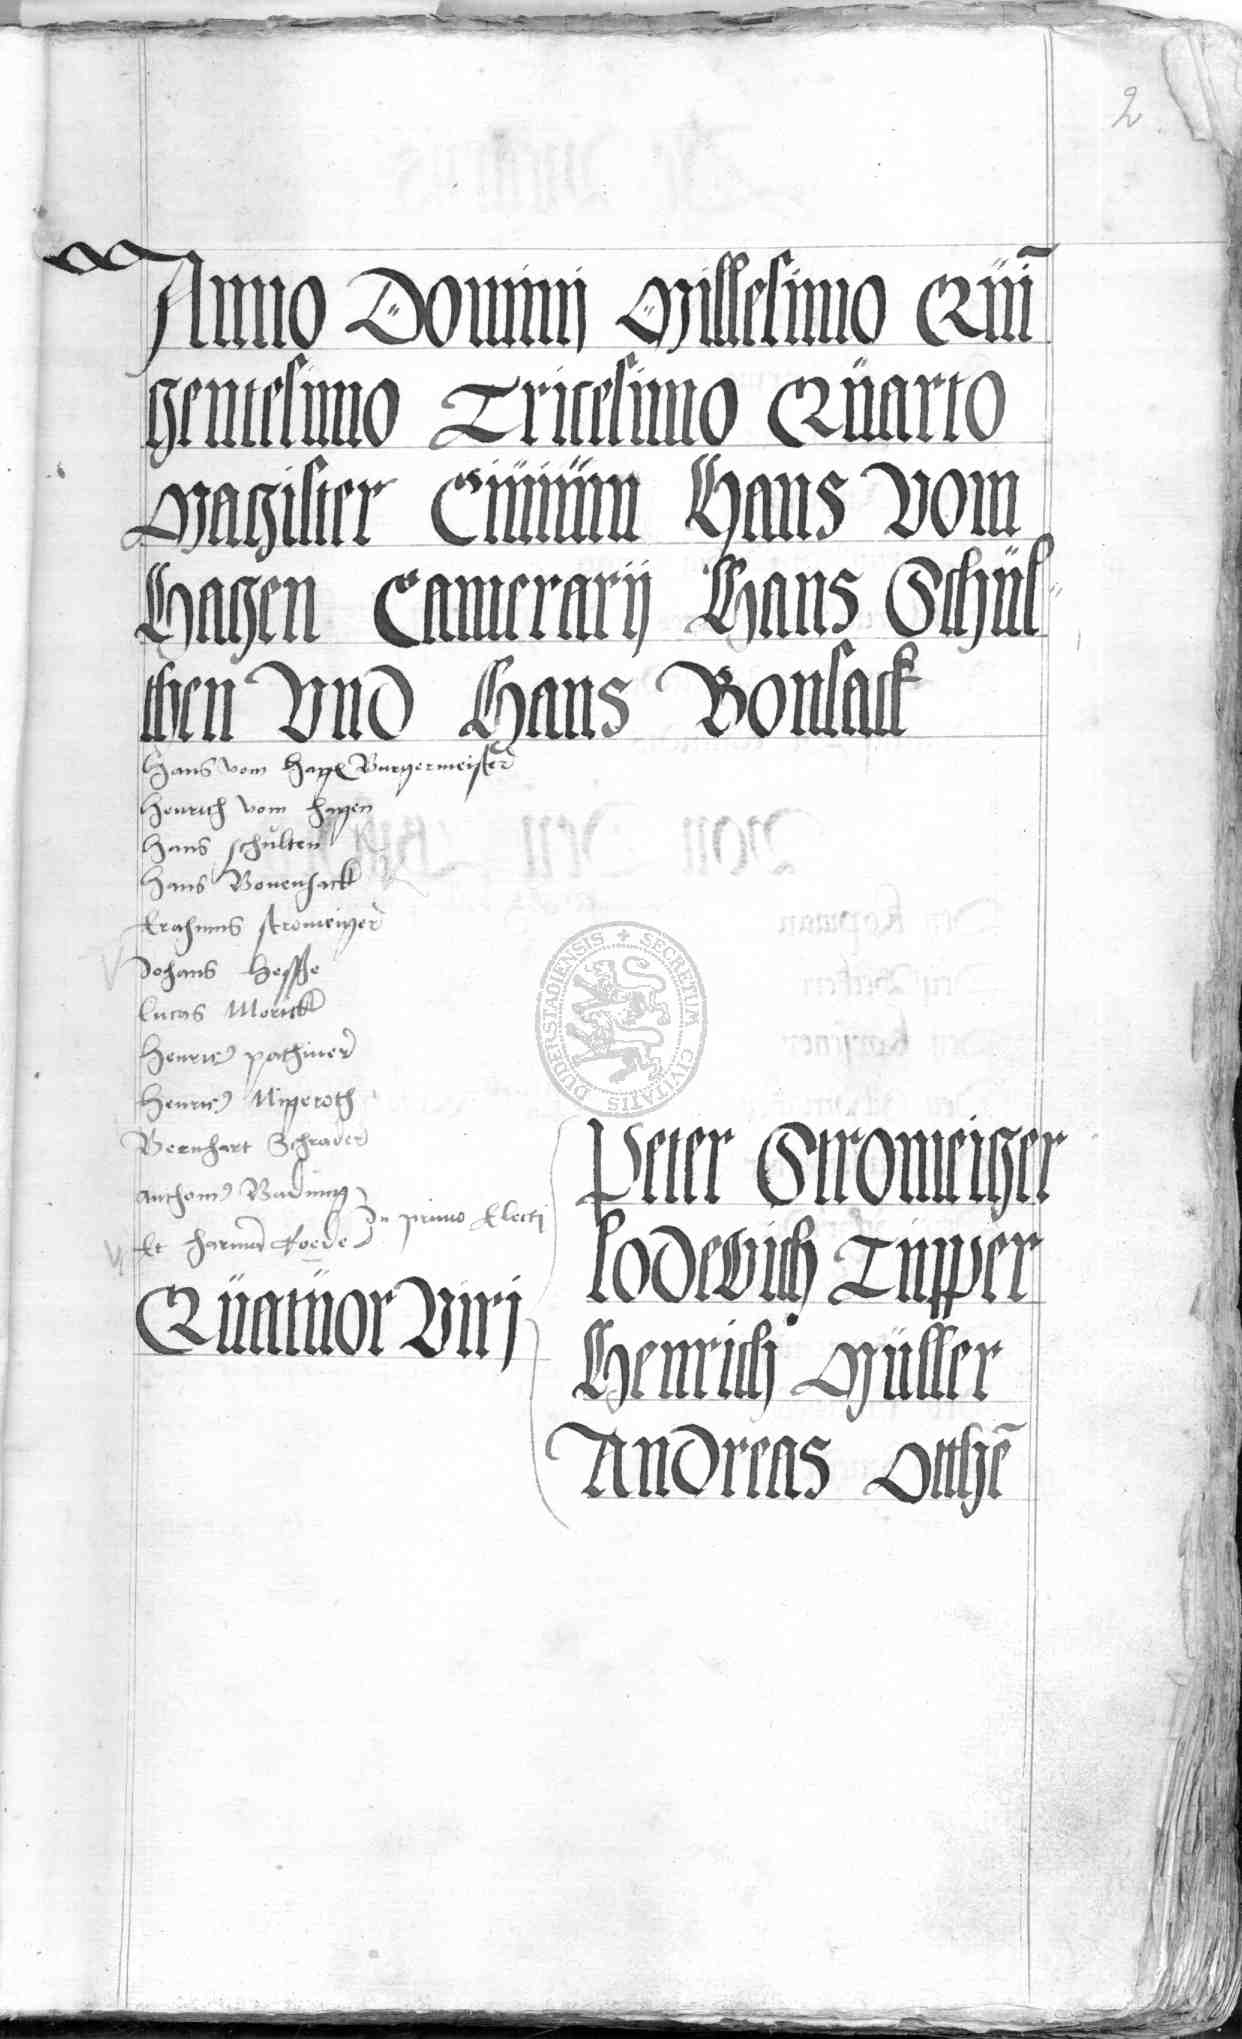 2
Anno Domini Millesimo Quin̄
gentesimo Tricesimo Quarto
Magister Ciuium Hans Vom
Hagen Camerarij Hans Schul-
then Vnd Hans Bonsack
Hans vom Hagen Burgermeister
Henrich vom hagen
Hans schulten
Hans Bonensack
Erasmus stromeiger
Johans Hesse
Lucas Morick
Henric
Henric
Bernhart Schrader
Anthoni Badung
Et Roede
In primo Electi
Quatuor Virj
Peter Stromeiger
lodewich Tupper
Henrich Muller
Andreas Otthē
SECRETUM CIVITATIS DUDERSTADIENSIS